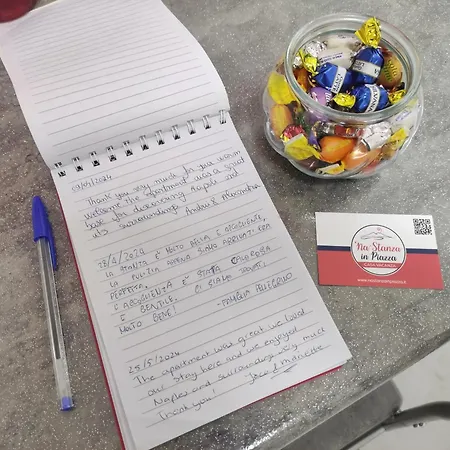 03/04/2024
Thank you very much for your warm
welcome. The apartment was a good
base for discovering Napoli and
it's surroundings. Andrei &
18/4/2024
LA STANZA È MOLTO BELLA E ACCOGLIENTE,
LA PULIZIA APPENA SIAMO ARRIVATI ERA
PERFETTA,
L'ACCOGLIENZA È STATA CALOROSA
E GENTILE, CI SIAMO TROVATI
MOLTO BENE! -FAMIGLIA PELLEGRINO
25/5/2024
The apartment was great we loved
our stay here and we enjoyed
Naples and surroundings very much
Thank you! Jose & Marlotte
Na Stanza
in Piazza
CASA VACANZA